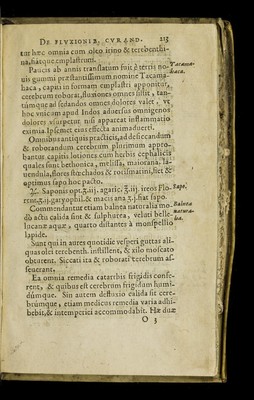 DE FLVXIONIB. CVRAND. 213
tur hæc omnia cum oleo irino & terebenthi-
na, fiátque emplastrum.
Paucis ab annis translatum fuit è terris no-
uis gummi præstantissimum nomine Tacama-
haca, capiti in formam emplastri apponitur,
cerebrum roborat, fluxiones omnes sistit, tan-
túmque ad sedandos omnes dolores valet, vt
hoc vnicum apud Indos aduersus omnigenos
dolores vsurpetur, nisi appareat inflammatio
eximia. Ipsemet eius effecta animaduerti.
Omnibus antiquis practicis, ad desiccandum
& roborandum cerebrum plurimum appro-
bantur capitis lotiones cum herbis cephalicis
quales sunt bethonica, melissa, maiorana, la-
uendula, flores stœchados & rorismarini, fiet &
optimus sapo hoc pacto.
Saponis opt. agaric. ireos Flo-
rent. garyophil. & macis ana fiat sapo.
Commendantur etiam balnea naturalia mo-
dò actis calida sint & sulphurea, veluti belle-
lucanæ aquæ, quarto distantes à monspellio
lapide.
Sunt qui in aures quotidie vesperi guttas ali-
quas olei terebenth. instillent, & xilo moscato
obturent. Siccati ita & roborati cerebrum as-
seuerant.
Ea omnia remedia catarrhis frigidis confe-
runt, & quibus est cerebrum frigidum humi-
dúmque. Sin autem defluxio calida sit cere-
brúmque, etiam medicus remedia varia adhi-
bebit, & intemperiei accommodabit. Hæ duæ
O 3
Tacama-
haca.
Sapo.
Balnea
natura-
lia.